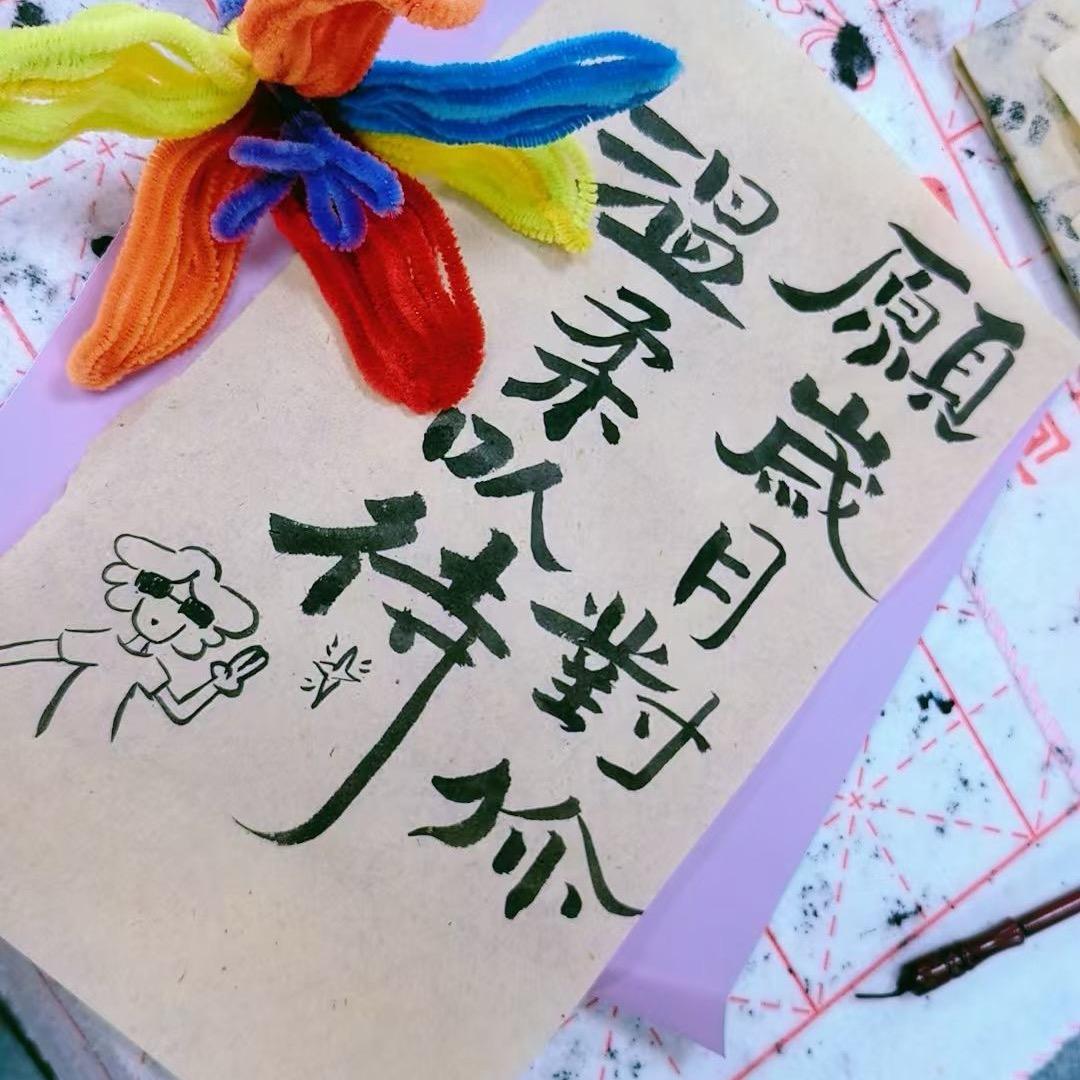 願歲月對你
溫柔以待